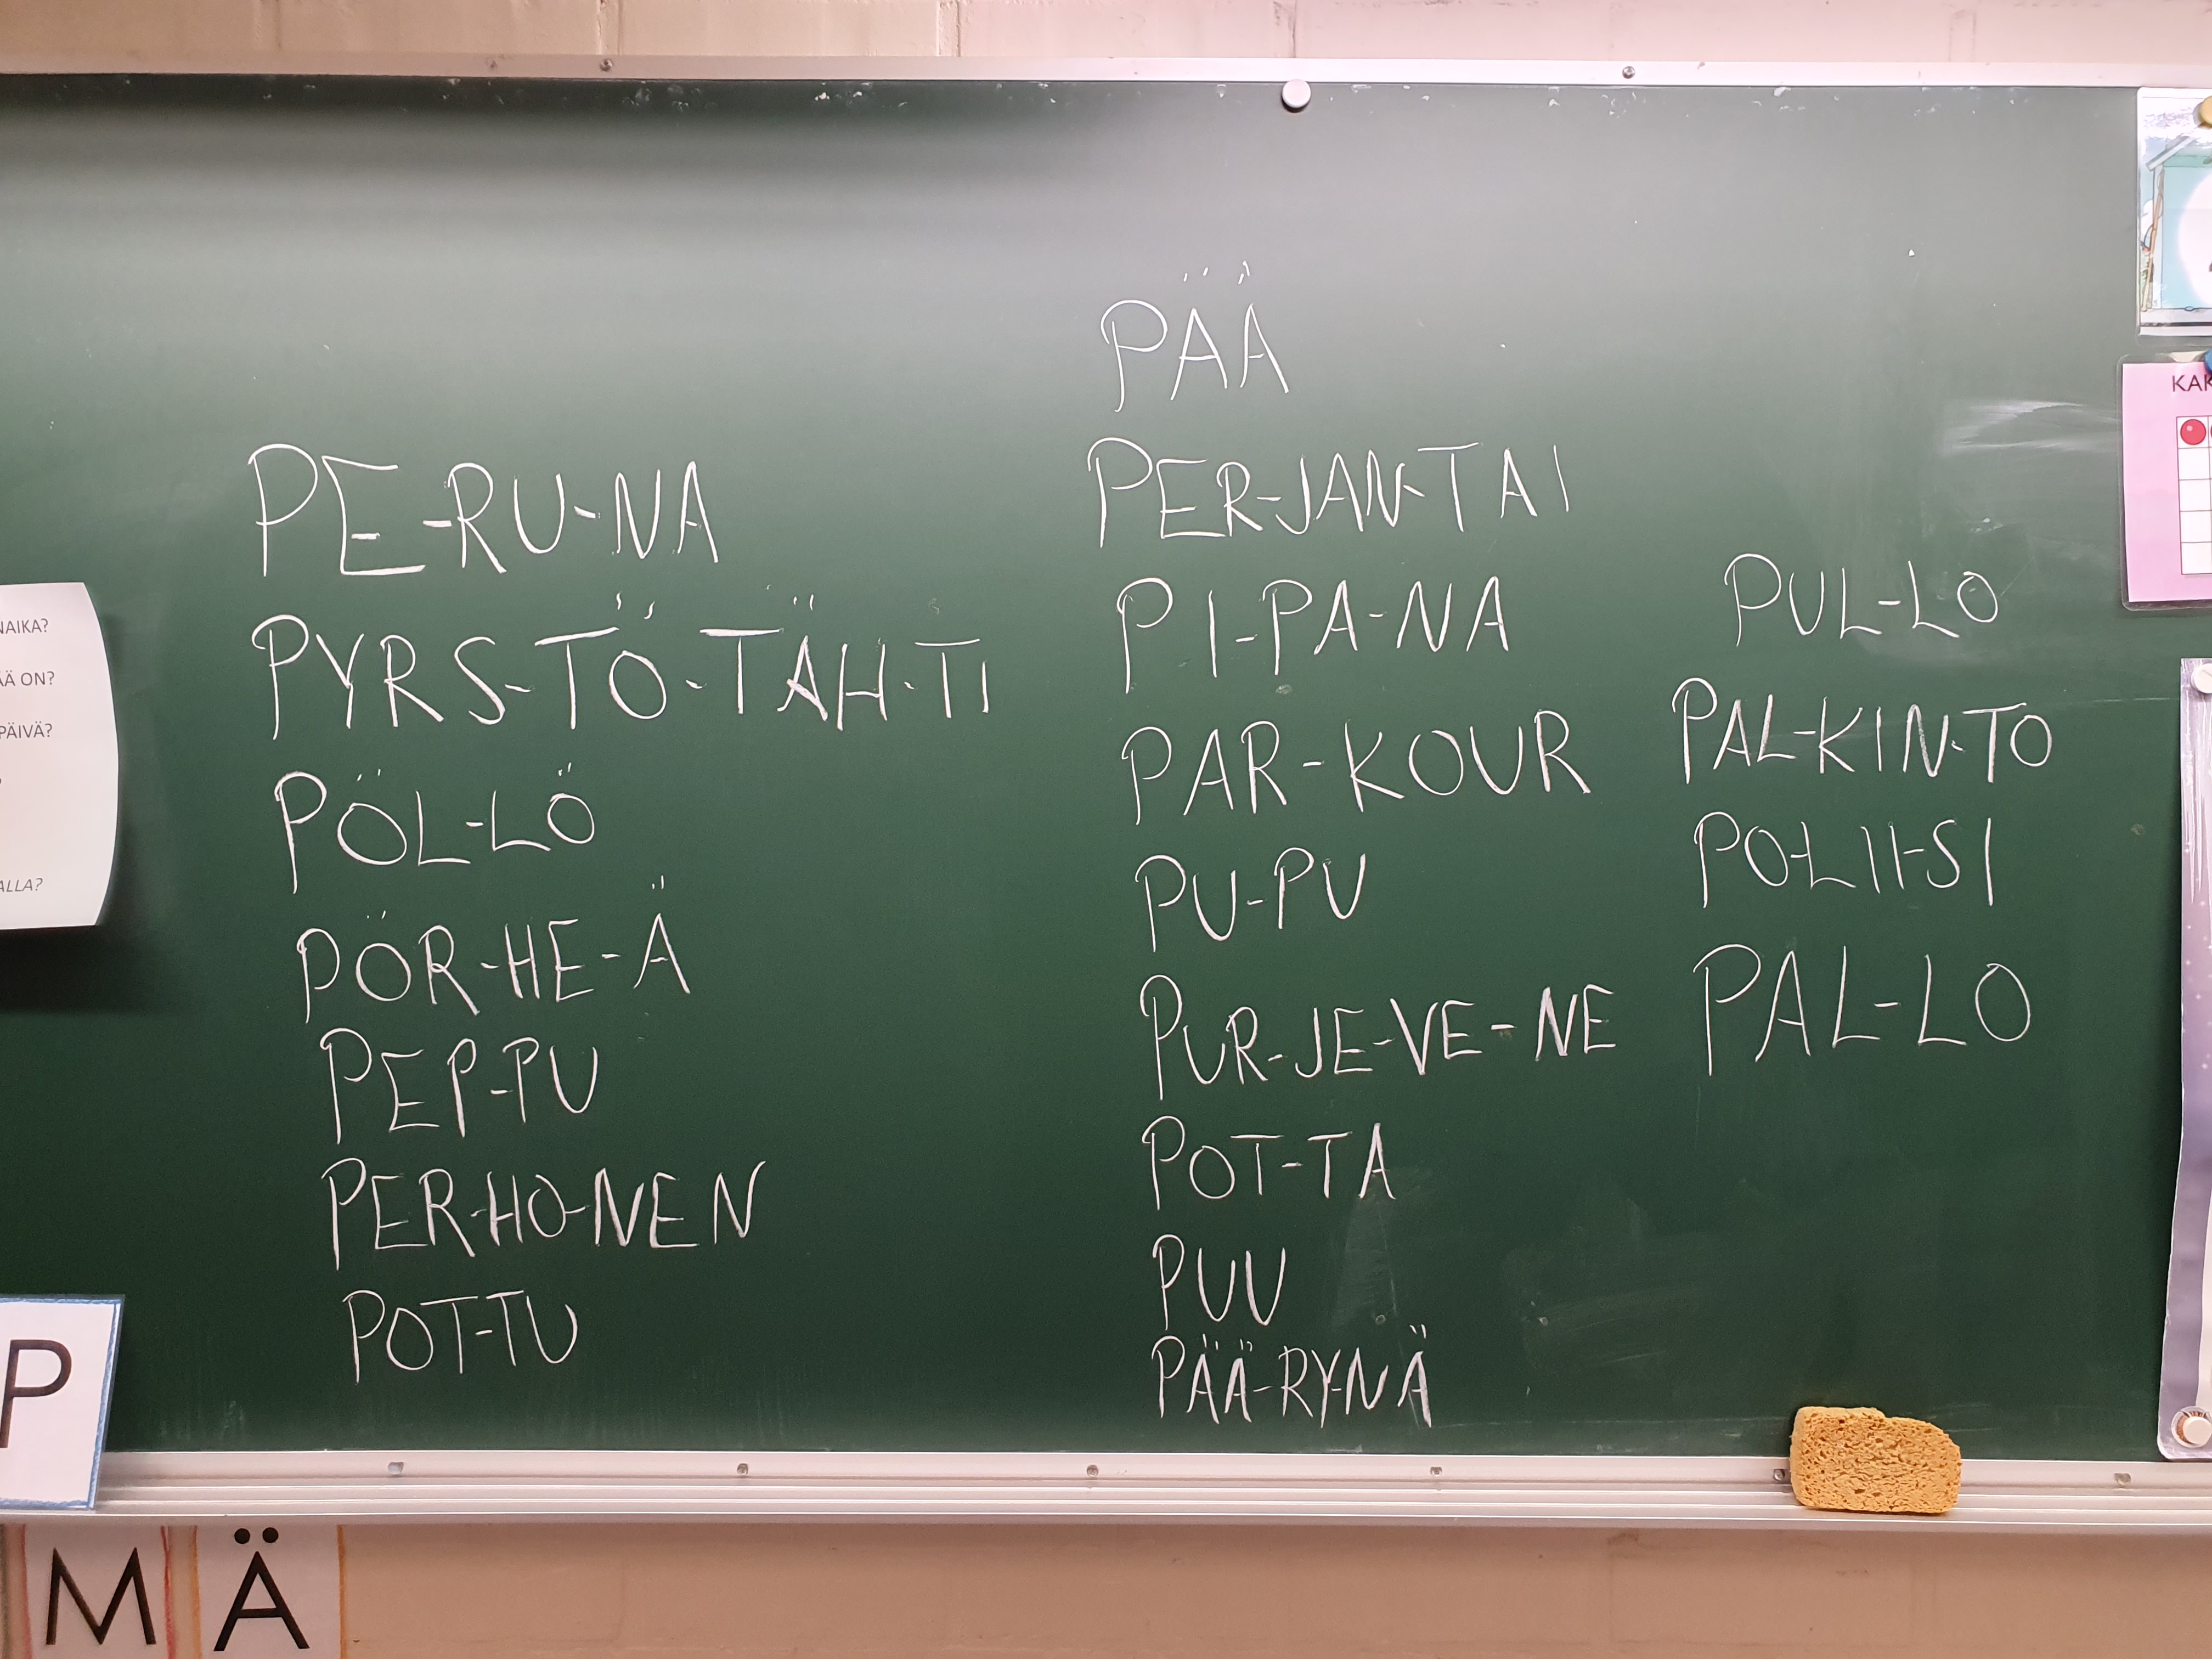 PE-RU-NA
PYRS-TÖ-TÄH-TI
PÖL-LÖ
PÖR-HE-Ä
PEP-PU
PER-HO-NEN
POT-TU
PÄÄ
PER-JAN-TAI
PI-PA-NA
PAR-KOUR
PU-PU
PUR-JE-VE-NE
POT-TA
PUU
PÄÄ-RY-NÄ
PUL-LO
PAL-KIN-TO
PO-LII-SI
PAL-LO
NAIKA?
ÄÄ ON?
PÄIVÄ?
ALLA?
P
M Ä
KAK